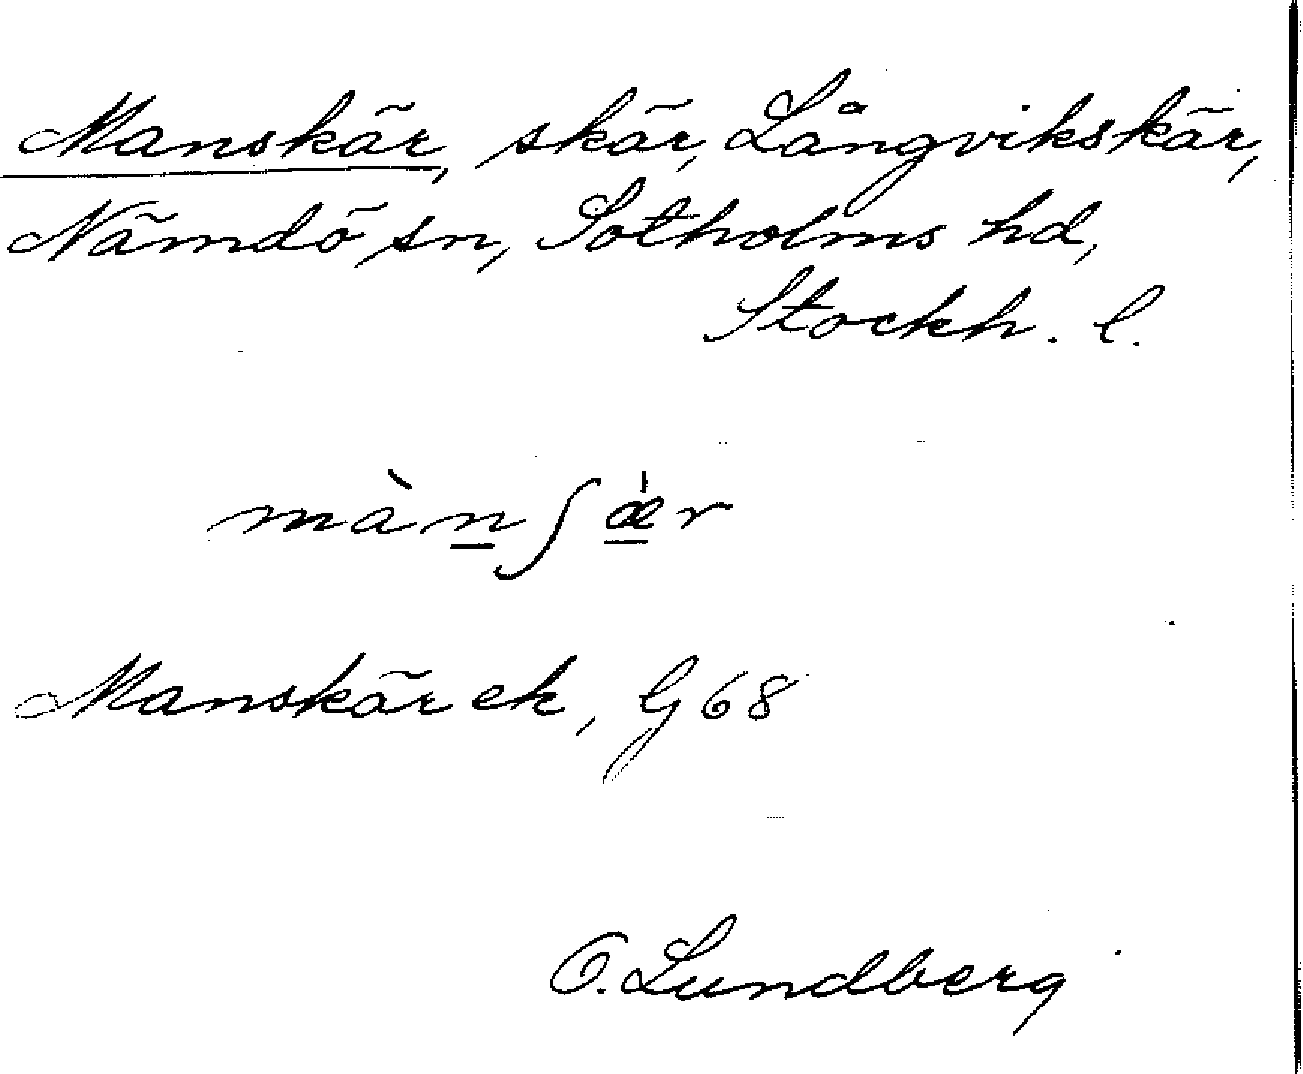 Manskär, skär, Långvikskär,
Nämdö sn, Sotholms hd,
Stockh. l.
màn̲ʃæ̲̍r
Manskär ek, G68
O. Lundberg